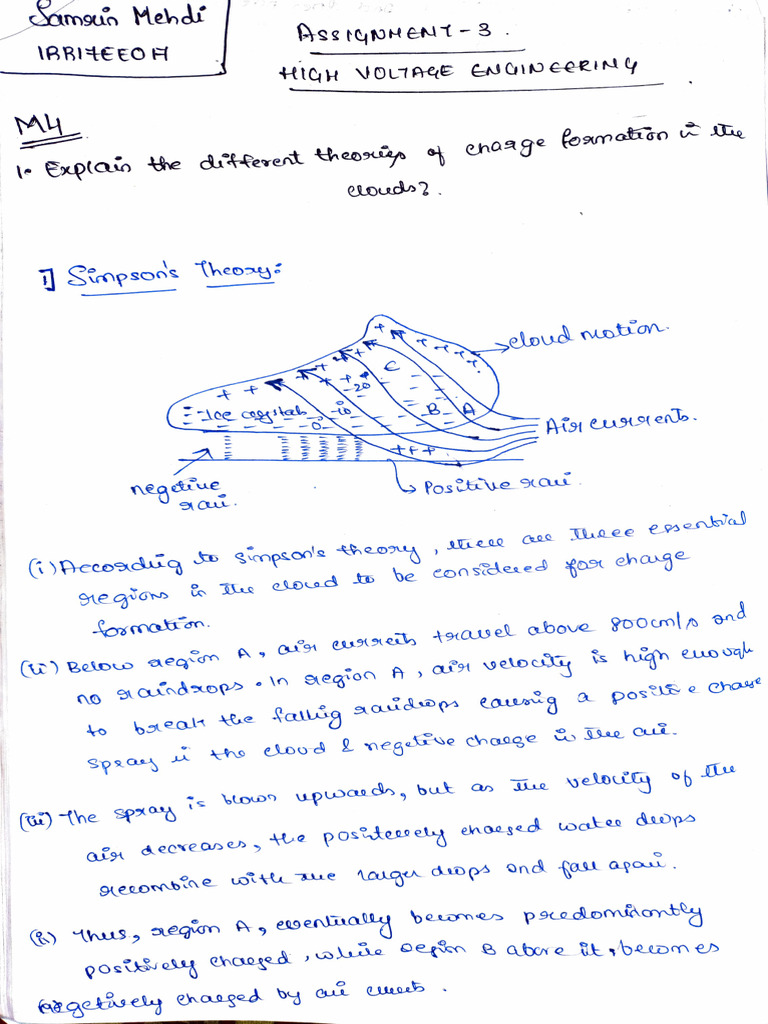 Samrin Mehdi
1RR17EE017
ASSIGNMENT-3.
HIGH VOLTAGE ENGINEERING
M4
1. Explain the different theories of charge formation in the
clouds?.
1] Simpson's Theory:
cloud motion.
C
-20
Ice crystals
-10
0
B
A
Air currents.
negetive
rain.
Positive rain.
(i) According to simpson's theory, there are three essential
regions in the cloud to be considered for charge
formation.
(ii) Below region A, air currents travel above 800cm/s and
no raindrops. In region A, air velocity is high enough
to break the falling raindrops causing a positive charge
spray in the cloud & negetive charge in the air.
(iii) The spray is blown upwards, but as the velocity of the
air decreases, the positively charged water drops
recombine with the larger drops and fall again.
Thus, region A, eventually becomes predominantly
positively charged, while region B above it, becomes
negetively charged by air